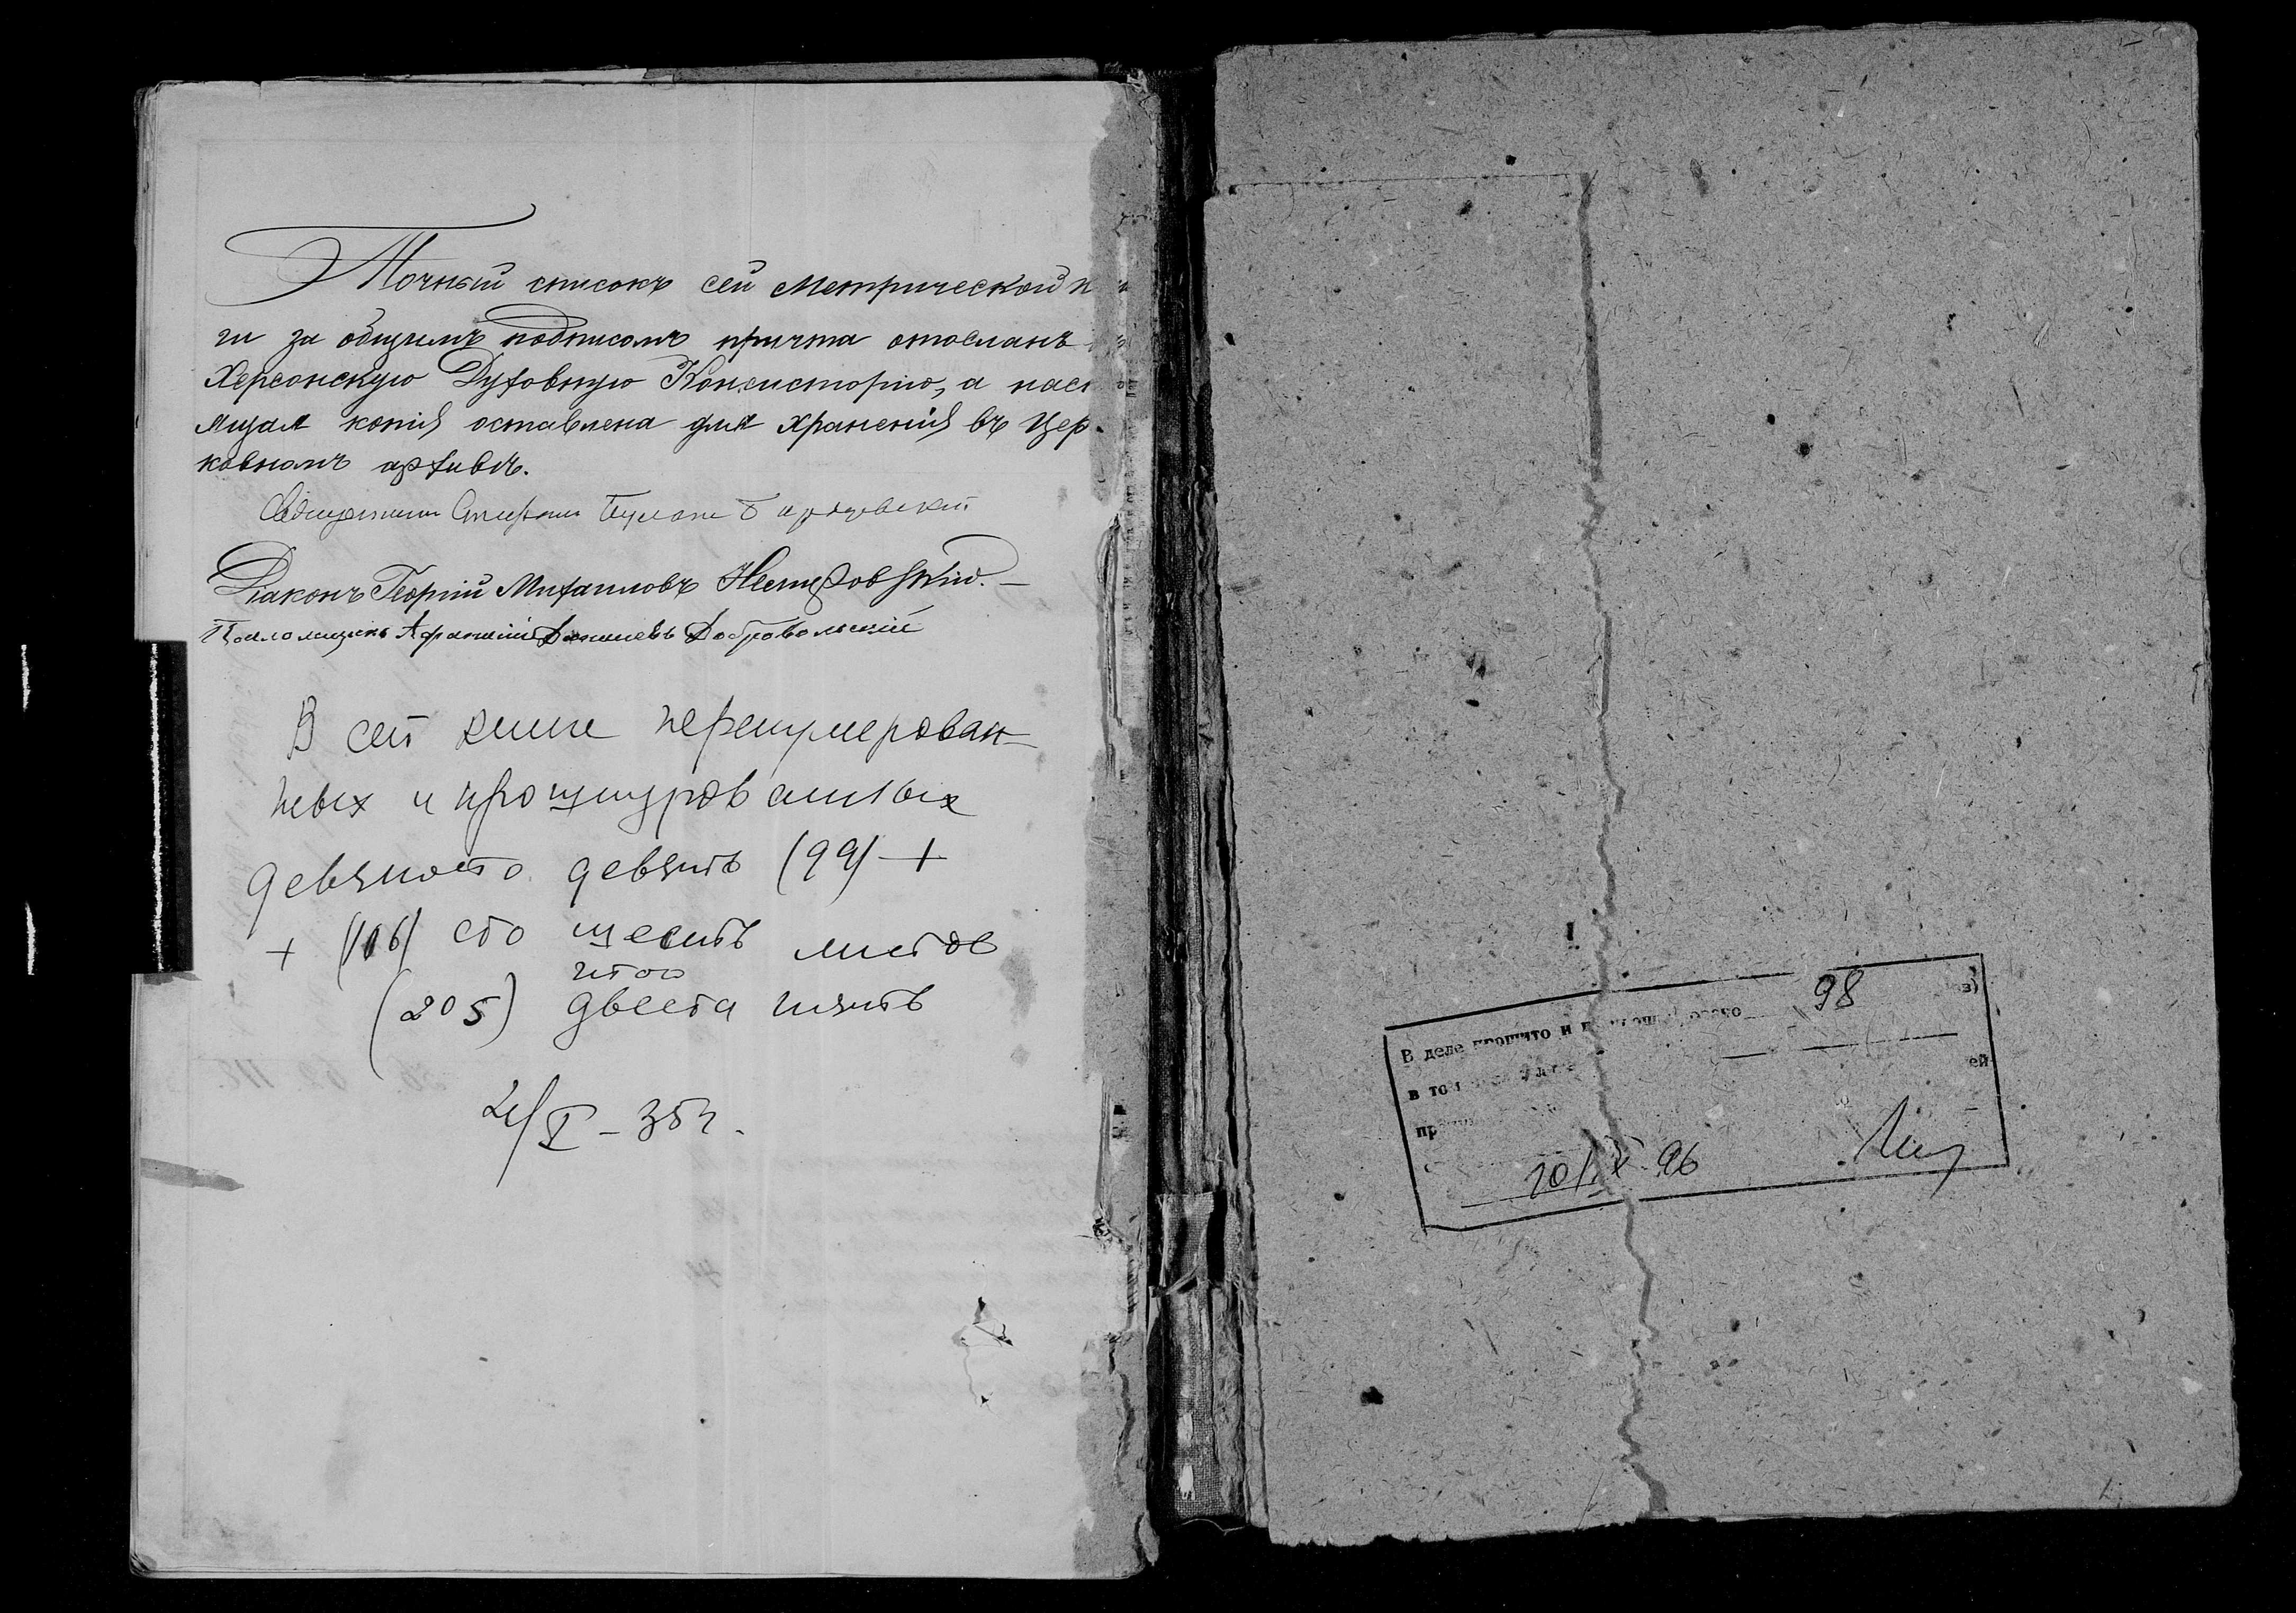 Точный списокъ сей Метрической к
ги за общимъ подписомъ причта отосланъ
Херсонскую Духовную Консисторію, а наст
ящая копія оставлена для храненія въ Цер-
ковномъ архивѣ.
Священникъ
Діаконъ Георгій Михаиловъ Нестеровскій. —
Псаломщикъ Афанасій Добровольскій
В сей книге перенумерован-
ных и прошнурованных
девяносто девять (99) +
+ (106) сто шесть листов
итого
(205) двести пять
/X - 35 г.
В деле прошито и 98 ов)
в том
ей
10/IX 96